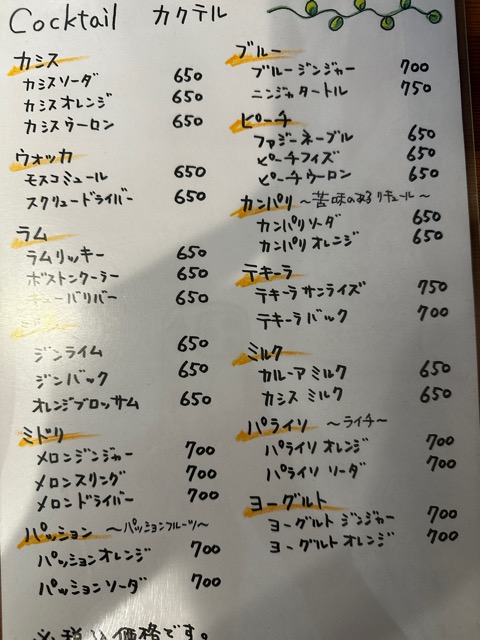 Cocktail カクテル
カシス
カシスソーダ 650
カシスオレンジ 650
カシスウーロン 650
ウォッカ
モスコミュール 650
スクリュードライバー 650
ラム
ラムリッキー 650
ボストンクーラー 650
キューバリバー 650
ジン
ジンライム 650
ジンバック 650
オレンジブロッサム 650
ミドリ
メロンジンジャー 700
メロンスリング 700
メロンドライバー 700
パッション 〜パッションフルーツ〜
パッションオレンジ 700
パッションソーダ 700
ブルー
ブルージンジャー 700
ニンジャタートル 750
ピーチ
ファジーネーブル 650
ピーチフィズ 650
ピーチウーロン 650
カンパリ 〜苦味のあるリキュール〜
カンパリソーダ 650
カンパリオレンジ 650
テキーラ
テキーラサンライズ 750
テキーラバック 700
ミルク
カルーアミルク 650
カシスミルク 650
パライソ 〜ライチ〜
パライソオレンジ 700
パライソソーダ 700
ヨーグルト
ヨーグルトジンジャー 700
ヨーグルトオレンジ 700
※税込価格です。